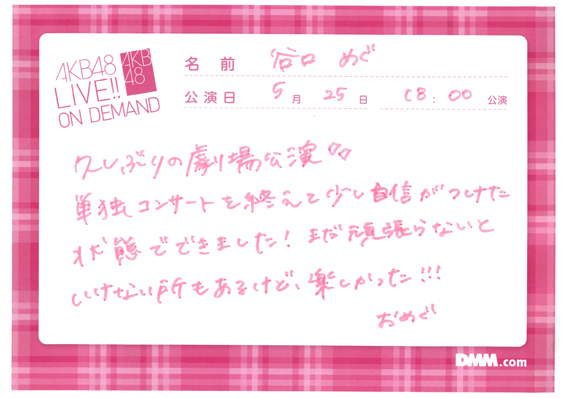 AKB48
LIVE!!
ON DEMAND
AKB
48
名前 谷口 めぐ
公演日 5月25日 18:00 公演
久しぶりの劇場公演
単独コンサートを終えて少し自信がつけた
状態でできました!まだ頑張らないと
いけない所もあるけど、楽しかった!!!
おめぐ
DMM.com